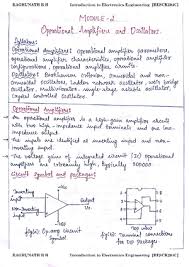 RAGHUNATH B H Introduction to Electronics Engineering [BESCK204C]
MODULE - 2
Operational Amplifiers and Oscillators.
Syllabus:
Operational Amplifiers: Operational amplifier parameters,
operational amplifier characteristics, operational amplifier
configurations, operational amplifier circuits.
Oscillators: Barkhausen criterion, sinusoidal and non-
sinusoidal oscillators, Ladder network oscillator, Wein bridge
oscillator, multivibrators, single-stage astable oscillator,
crystal controlled oscillators.
Operational Amplifiers
An operational amplifier is a high-gain amplifier circuit
with two high impedance input terminals and one low-
impedance output.
The inputs are identified as inverting input and non-
inverting input.
The voltage gains of integrated circuit (IC) operational
amplifiers are extremely high, typically 200000
Circuit Symbol and packages:
Inverting
input
Output
Non-inverting
input
Fig(a): Op-amp circuit
Symbol
Fig(b): Terminal connections
for DIP packages
RAGHUNATH B H Introduction to Electronics Engineering [BESCK204C]